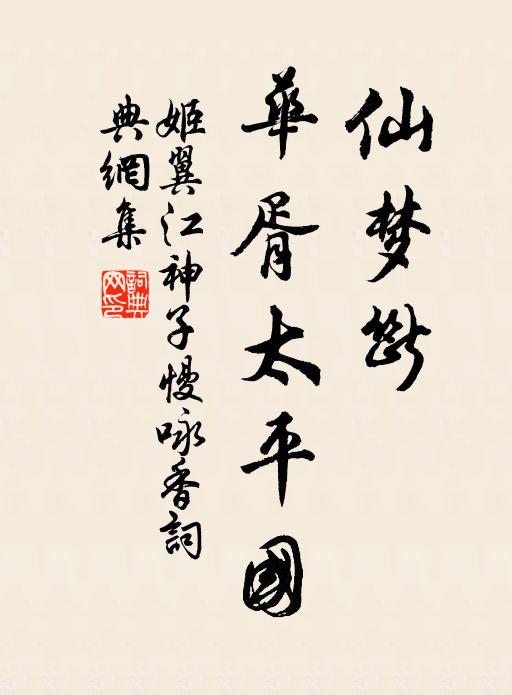 仙梦断
華胥太平國
姬翼江神子慢咏香詞
典網集
詞典网印